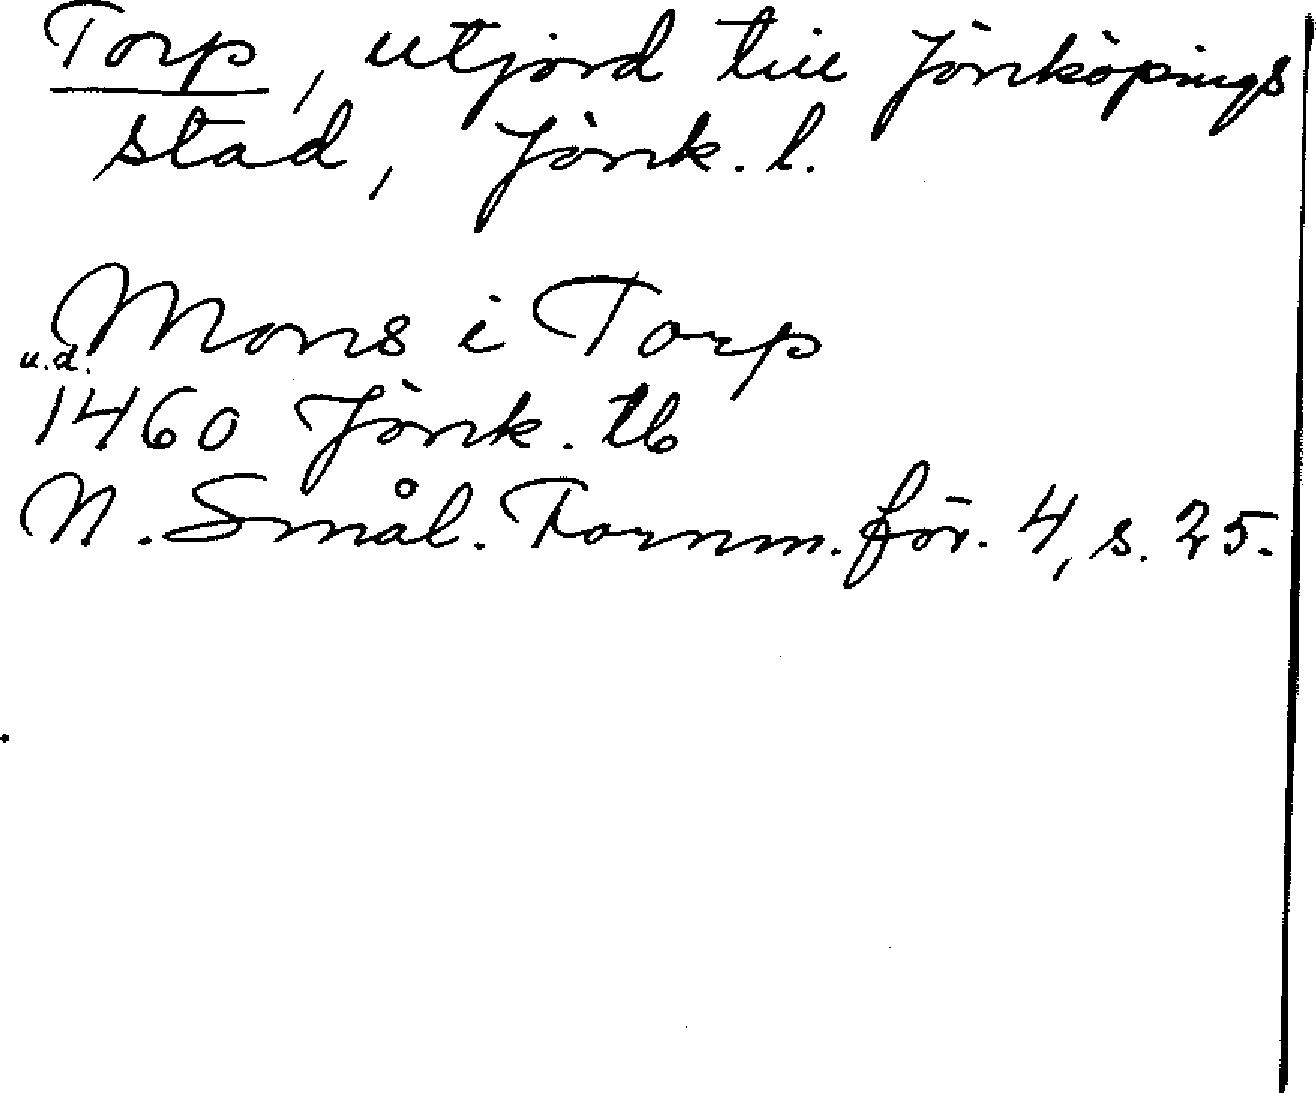 Torp, utjord till Jönköpings
stad, Jönk. l.
Mons i Torp
u.d.
1460 Jönk. tb
N. Smål. Fornm. för. 4, s. 25.